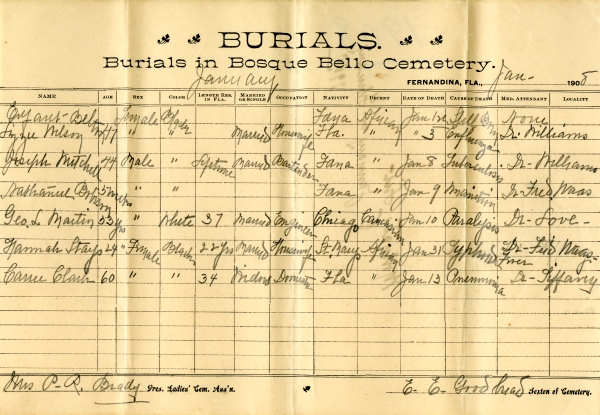 BURIALS.
Burials in Bosque Bello Cemetery.
January FERNANDINA, FLA., Jan- 1908
NAME AGE SEX COLOR LENGTH RES. IN FLA. MARRIED OR SINGLE OCCUPATION NATIVITY DESCENT DATE OF DEATH CAUSE OF DEATH MED. ATTENDANT LOCALITY
Female Black Fdna African Jan Still Born None
Lizzie Wilson 47 " " Married Housewife Fla. " " 3 Dr Williams
Joseph Mitchell 44 Male " lifetime Married Bartender Fana " Jan 8 Tuberculosis Dr- Williams
Nathaniel Brown 5 mths " " Fana " Jan 9 Dr- Fred Waas
Geo. L Martin 53 yrs " White 37 Married Engineer Chicago Caucasian Jan 10 Paralysis Dr- Love-
Hannah Stays 24 " Female Black 22 yrs Married Housewife St. Marys African Jan 31 Typhoid Fever Dr- Fred Waas-
Carrie Clair 60 " " 34 Widow Domestic Fla " Jan 13 Pneumonia Dr- Tiffany
Mrs P- R. Brady Pres. Ladies' Cem. Ass'n. E- E- Goodbread Sexton of Cemetery.